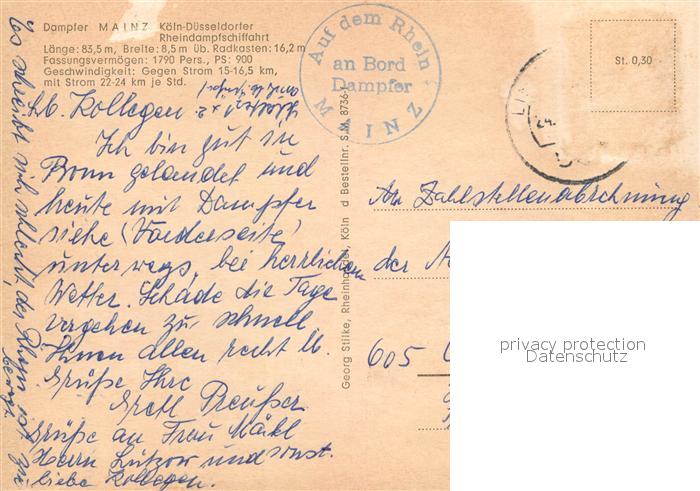 Dampfer MAINZ Köln-Düsseldorfer
Rheindampfschiffahrt
Länge: 83,5 m, Breite: 8,5 m üb. Radkasten: 16,2 m
Fassungsvermögen: 1790 Pers., PS: 900
Geschwindigkeit: Gegen Strom 15-16,5 km,
mit Strom 22-24 km je Std.
Lb. Kollegen
Ich bin gut in
Bonn gelandet und
heute mit Dampfer
siehe (Vorderseite)
unterwegs, bei herrlichem
Wetter. Schade die Tage
vergehen zu schnell
Ihnen allen recht lb.
Grüße Ihre
Gretl Preußer
Grüße an Frau Mäkl
Herrn Lützow und sonst.
liebe Kollegen.
Es schreibt sich schlecht, der Rhein ist zu
bewegt
Auf dem Rhein
an Bord
Dampfer
MAINZ
Georg Stilke, Rheinhandel, Köln d Bestellnr. S.M. 8736-1
St. 0,30
An Zahlstellenabrechnung
der
605
privacy protection
Datenschutz